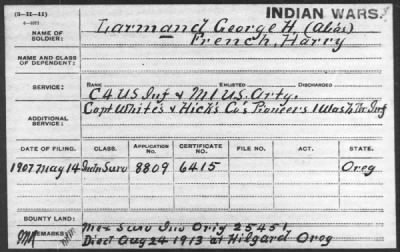 (3-11-11)
INDIAN WARS.
6-4077
NAME OF SOLDIER: Larmand George H. (Alias)
French, Harry
NAME AND CLASS OF DEPENDENT:
SERVICE: RANK ENLISTED DISCHARGED
C 4 US Inf & M 1 U.S. Arty.
ADDITIONAL SERVICE: Capt White's & Hick's Co's Pioneers 1 Wash. Ter Inf
DATE OF FILING. CLASS. APPLICATION NO. CERTIFICATE NO. FILE. ACT. STATE.
1907 May 14 Indn Surv 8809 6415 Oreg
BOUNTY LAND:
REMARKS: Mex Surv Orig 25451
Died Aug 24 1913 at Hilgard Oreg